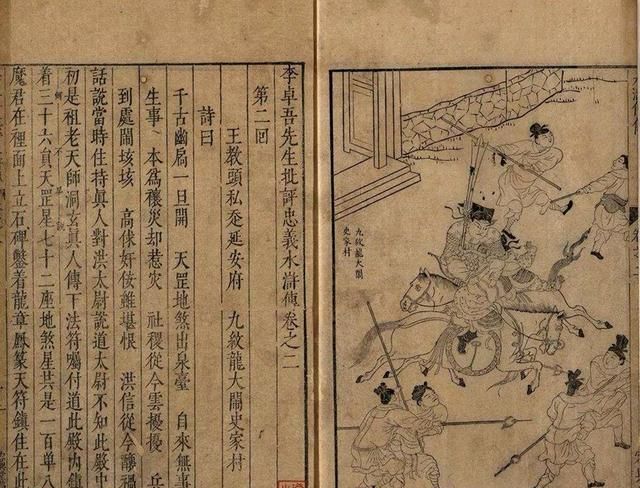 九紋龍大鬧
史家村
李卓吾先生批評忠義水滸傳卷之二
第二回
王教頭私走延安府 九紋龍大鬧史家村
詩曰
千古幽扃一旦開 天罡地煞出泉臺 自來無事
生事 本為禳災却惹災 社稷從今雲擾擾 兵
到處鬧垓垓 高俅奸佞雖堪恨 洪信從今釀禍
話說當時住持真人對洪太尉說道太尉不知此殿中
初是祖老天師洞玄真人傳下法符囑付道此殿內鎮
着三十六員天罡星七十二座地煞星共是一百單八
魔君在裡面上立石碑鑿着龍章鳳篆天符鎮住在此